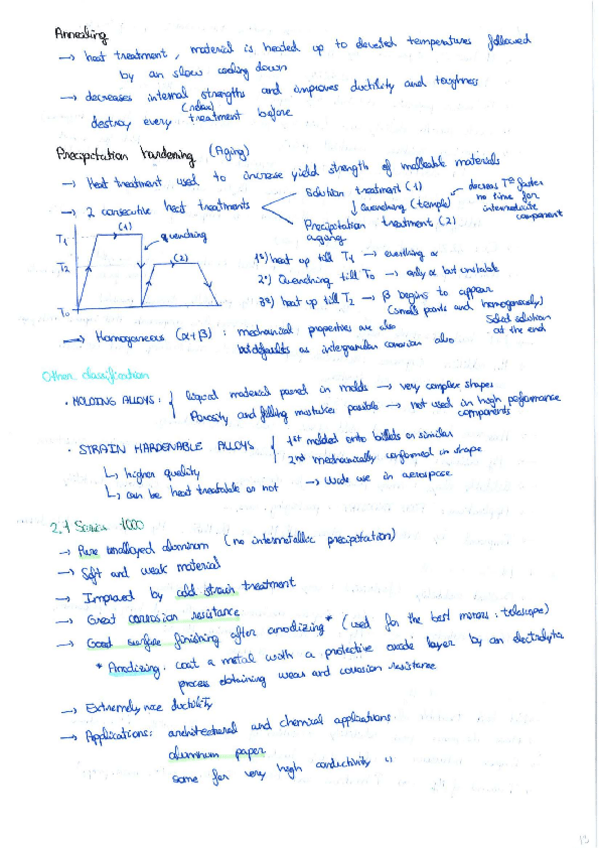 Annealing
→ heat treatment, material is heated up to elevated temperatures followed
by an slow cooling down
→ decreases internal strengths and improves ductility and toughness
(relax)
destroy every treatment before
Precipitation hardening (Aging)
→ Heat treatment used to increase yield strength of malleable materials
→ 2 consecutive heat treatments
Solution treatment (1)
↓ Quenching (temple)
decreas Tº faster
no time for
intermediate
component
Precipitation treatment (2)
aging
T1
T2
T0
(1)
quenching
(2)
1º) heat up till T1 → everthing α
2º) Quenching till T0 → only α but unstable
3º) heat up till T2 → β begins to appear
(small points and homogenously)
Solid solution
at the end
→ Homogeneous (α+β) : mechanical properties are also
but defaults as intergranular corrosion also
Other classification
· MOLDING ALLOYS : { liquid material poured in molds → very complex shapes
Porosity and filling mistakes possible → not used in high performance
components
· STRAIN HARDENABLE ALLOYS { 1st molded onto billets or similar
2nd mechanically conformed in shape
↳ higher quality
→ Wide use in aerospace
↳ can be heat treatable or not
2.1 Series 1000
→ Pure unalloyed aluminum (no intermetallic precipitation)
→ Soft and weak material
→ Improved by cold strain treatment
→ Great corrosion resistance
→ Good surface finishing after anodizing* (used for the best mirrors: telescope)
* Anodizing: coat a metal with a protective oxide layer by an electrolytic
process obtaining wear and corrosion resistance
→ Extremely nice ductility
→ Applications: architectural and chemical applications
aluminum paper
some for very high conductivity